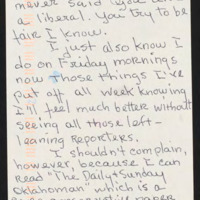 never said you
a liberal. You try to be
fair I know.
I just also know I
do on Friday mornings
now those things I've
put off all week knowing
I'll feel much better without
seeing all those left-
leaning Reporters.
I shouldn't complain,
however, because I can
read "The Daily+Sunday
Oklahoman" which is a
paper